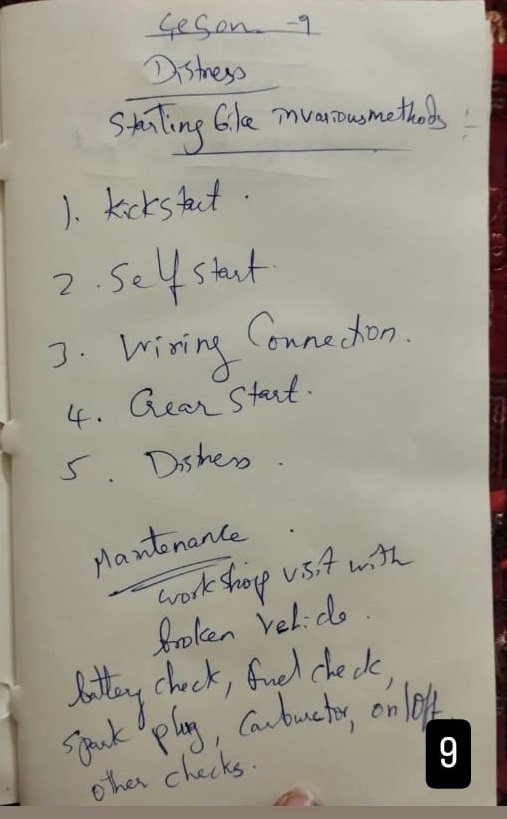 Leson -9
Distress
Starting bike in various methods :-
1). kickstart .
2 . Self start.
3 . Wiring Connection.
4 . Gear Start.
5 . Distress .
Maintenance .
workshop visit with
broken Vehicle .
battery check, fuel check,
spark plug, Carburetor, on/off
other checks.
9